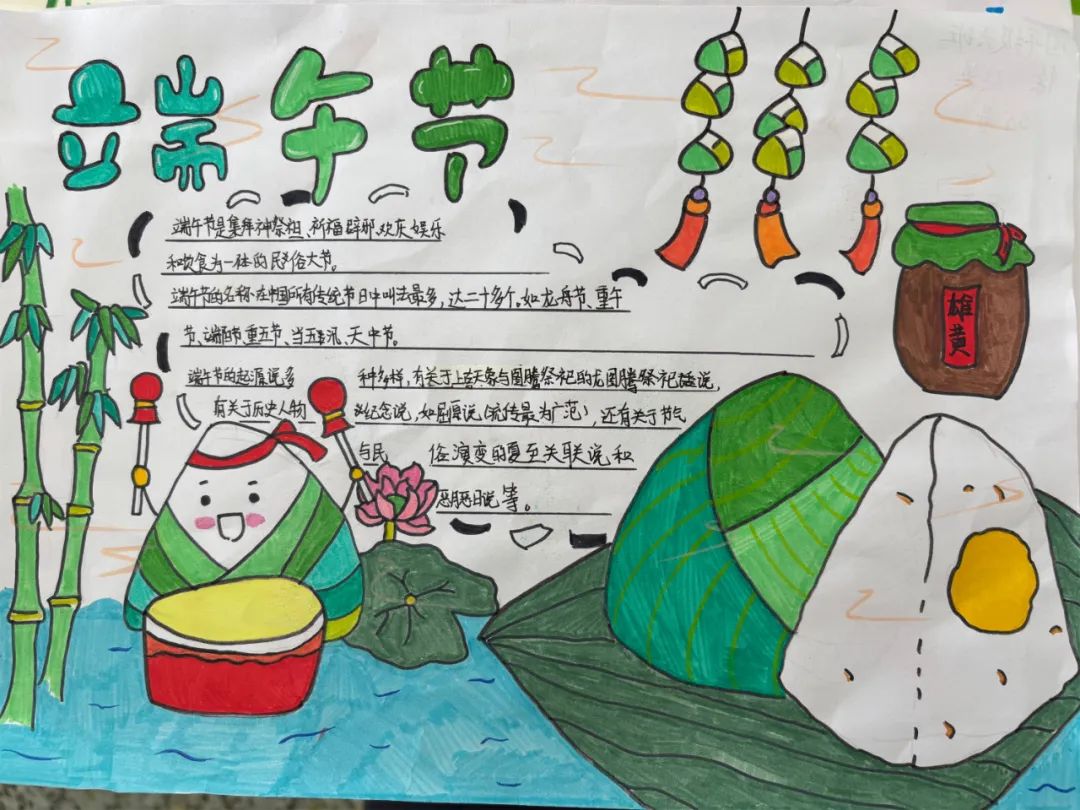 端午节
端午节是集拜神祭祖、祈福辟邪、欢庆娱乐
和饮食为一体的民俗大节。
端午节的名称在中国所有传统节日中叫法最多，达二十多个。如龙舟节、重午
节、端阳节、重五节、当五汛、天中节。
端午节的起源说多种多样，有关于上古天象与图腾祭祀的龙图腾祭祀说，
有关于历史人物的纪念说，如屈原说(流传最为广范)，还有关于节气
与民俗演变的夏至关联说和
恶月恶日说等。
雄黄